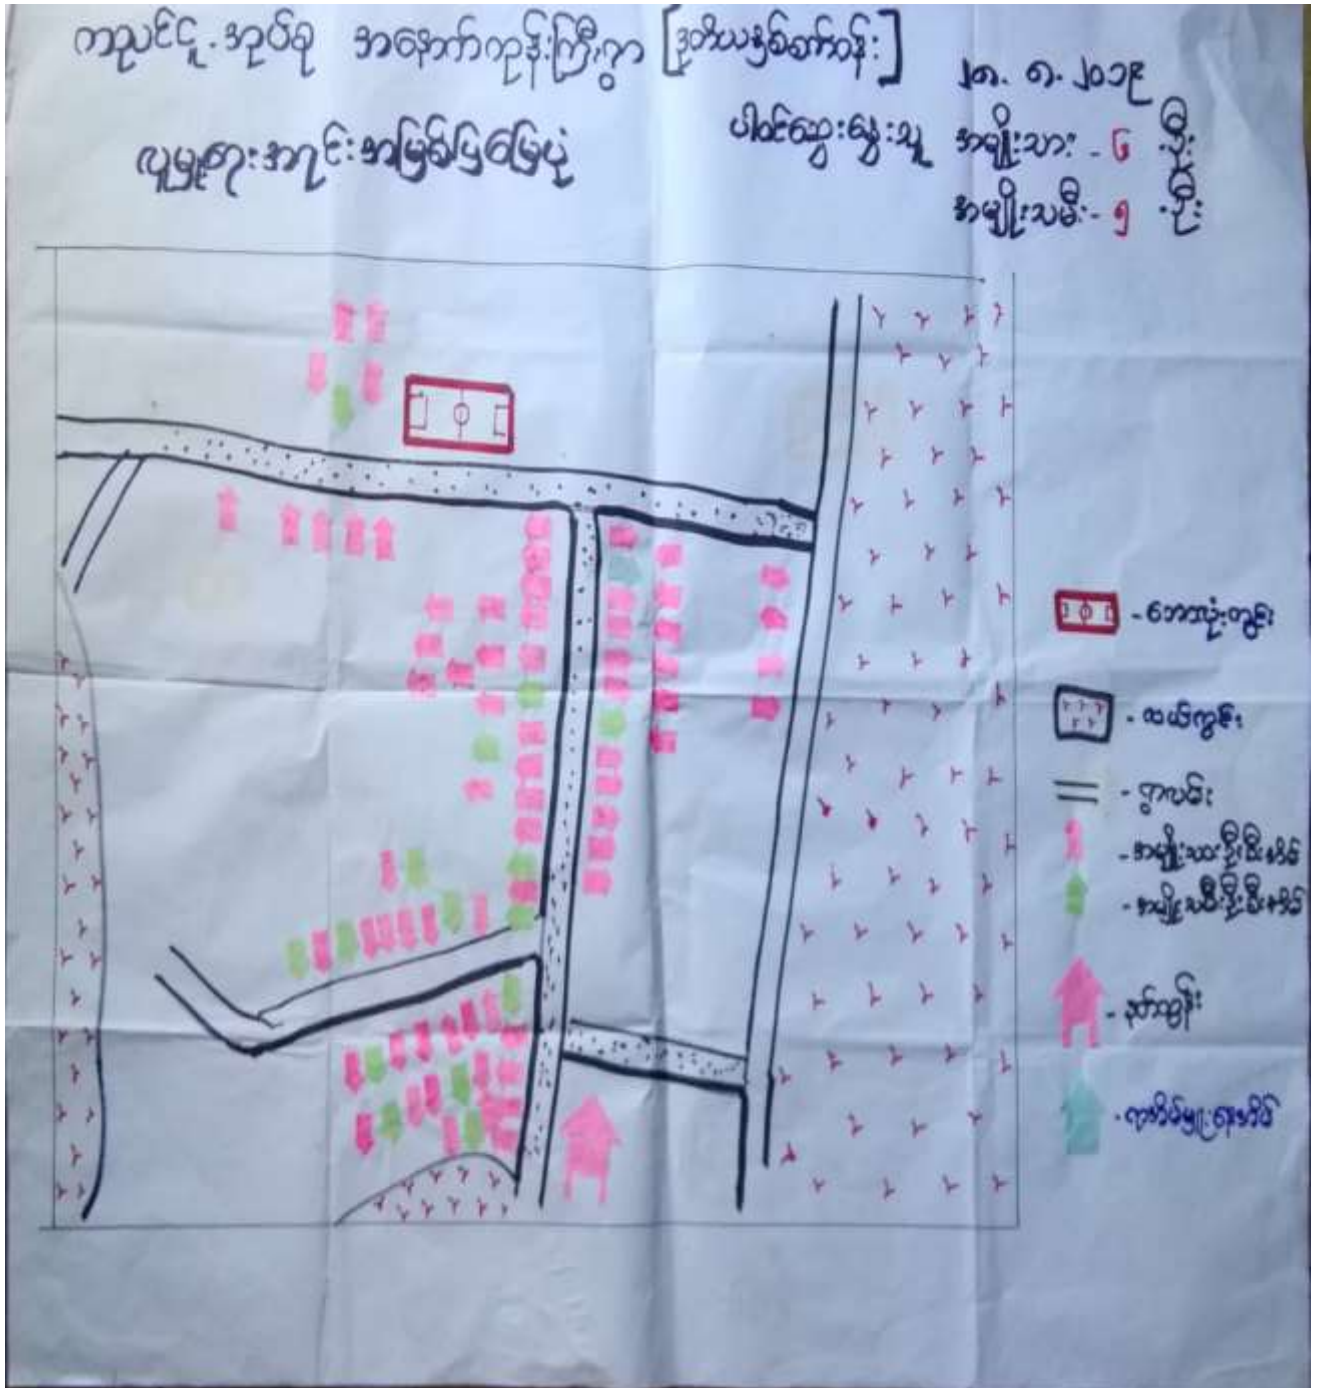 ကညင်ငူ.အုပ်စု အနောက်ကုန်းကြီးရွာ [ဒုတိယနှစ်စက်ဝန်း]
၂၈. ၈. ၂၀၁၉
လူမှုရေးအရင်းအမြစ်ပြမြေပုံ
ပါဝင်ဆွေးနွေးသူ အမျိုးသား - ၆ ဦး
အမျိုးသမီး - ၅ ဦး
- ဘောလုံးကွင်း
- လယ်ကွင်း
- ရွာလမ်း
- အမျိုးသားဦးစီးအိမ်
- အမျိုးသမီးဦးစီးအိမ်
- နတ်ကွန်း